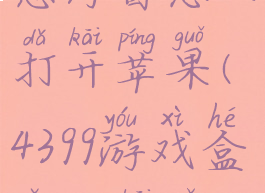 dǎ kāi píng guǒ
打开苹果(
yóu xì hé
4399游戏盒